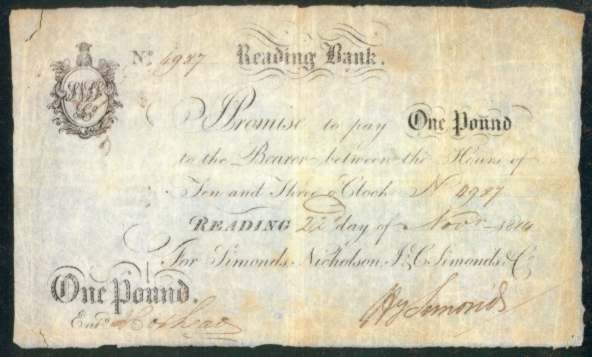 No. 4987 Reading Bank.
I Promise to pay One Pound
to the Bearer between the Hours of
Ten and Three o'Clock No 4987
READING day of Novr. 1814
For Simonds, Nicholson, & Simonds, & Co
One Pound.
Entd.
Hy Simonds